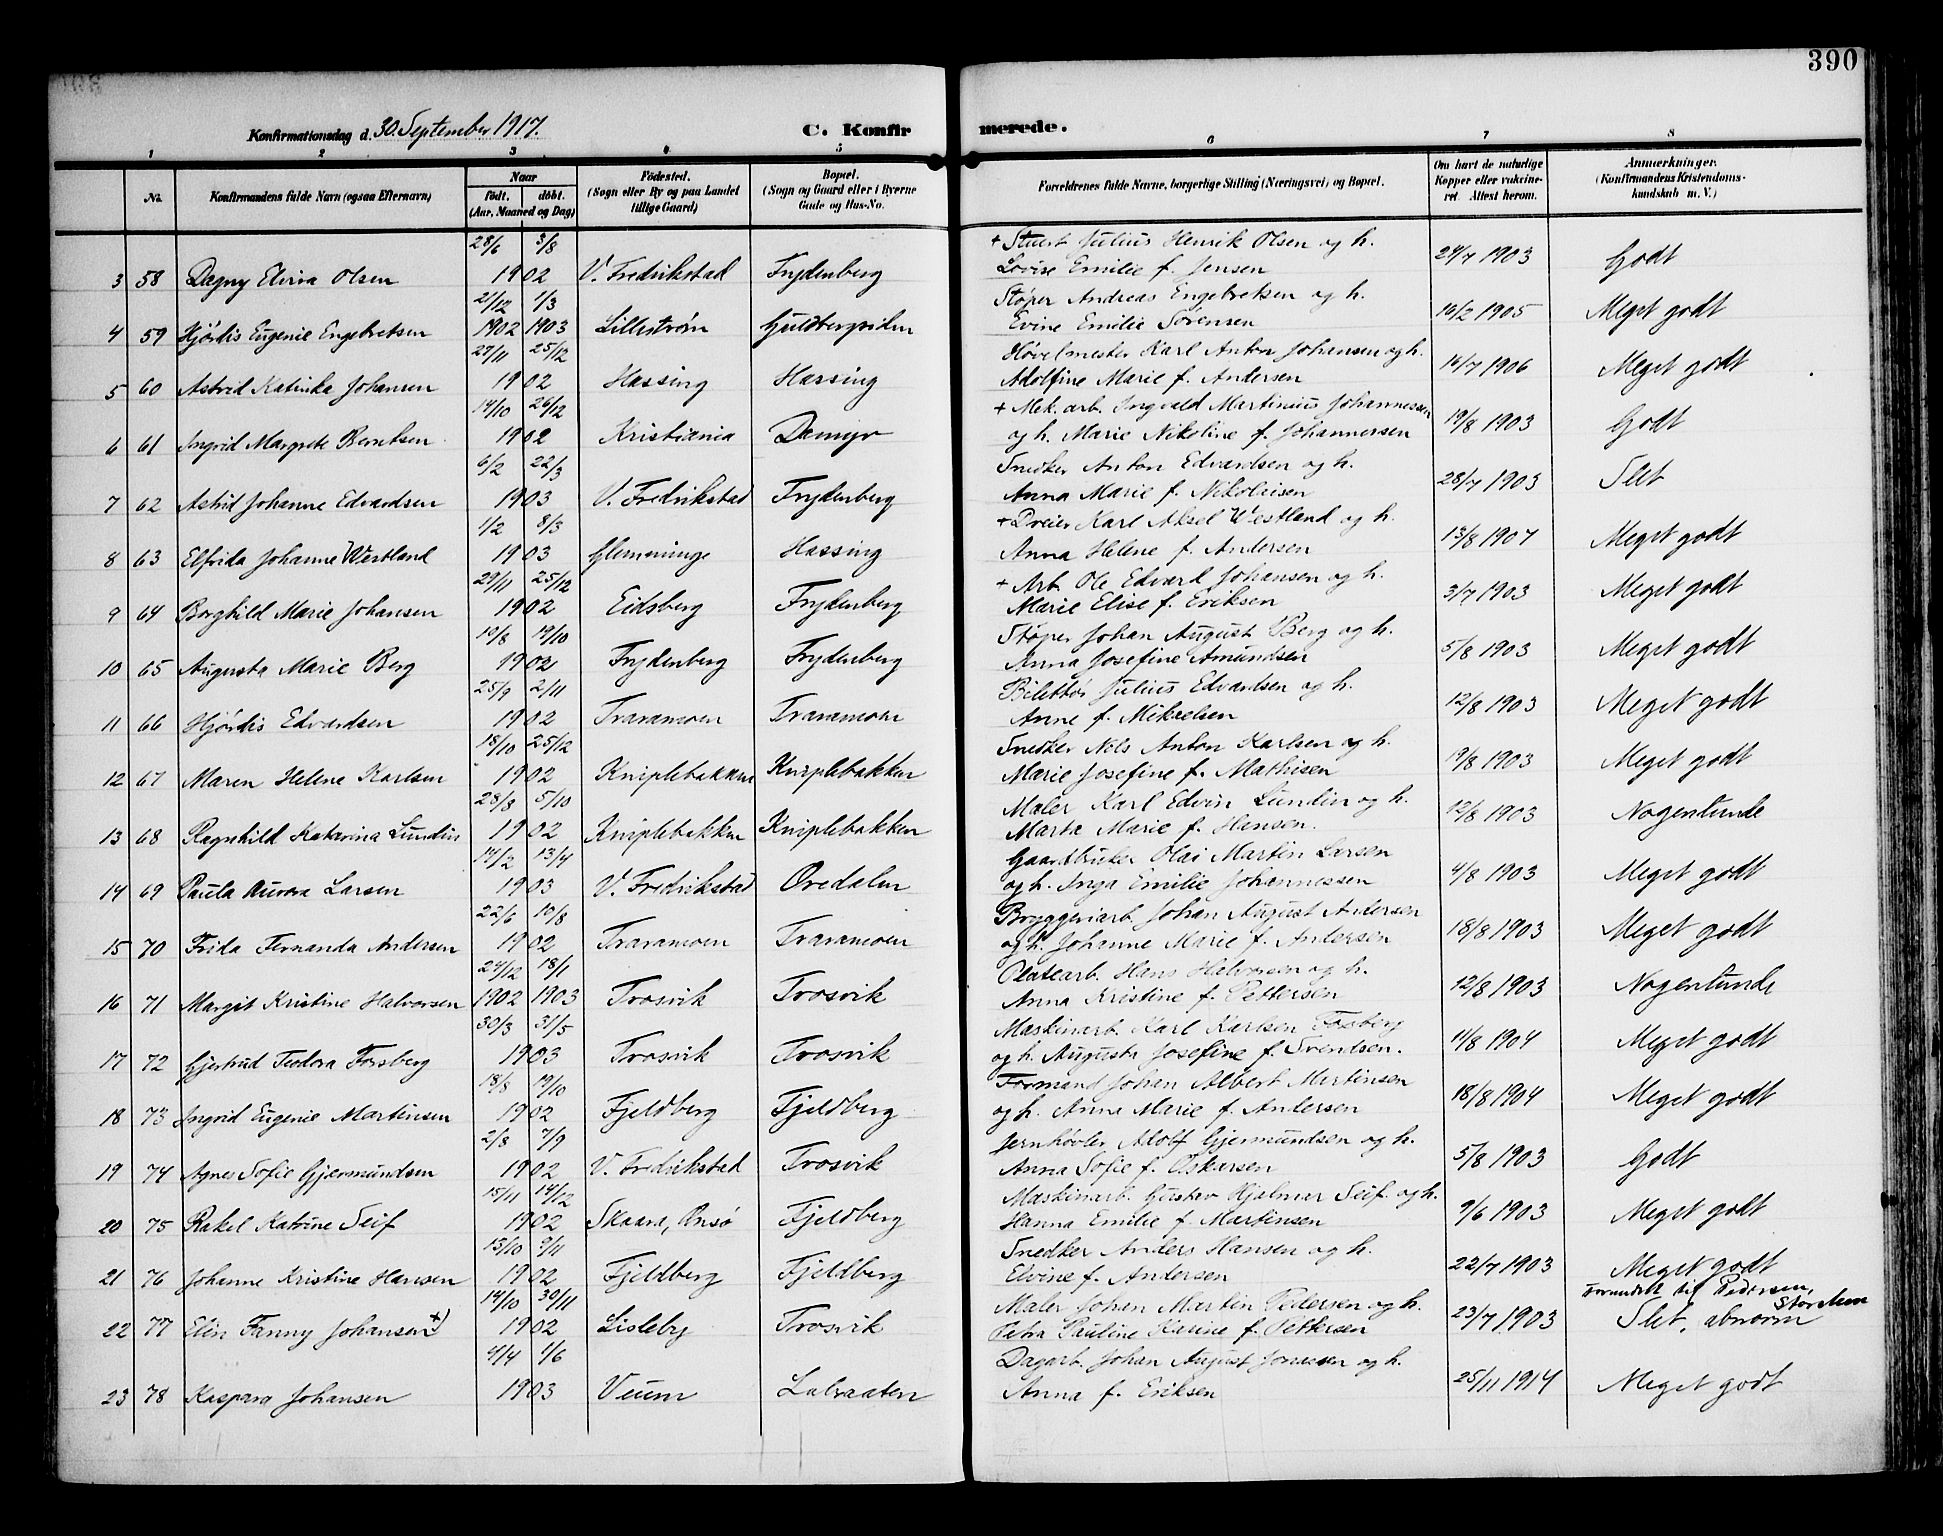 390
Konfirmationsdag d. 30. September 1917. C. Konfirmerede.
1 2 3 4 5 6 7 8
No. Konfirmandens fulde Navn (ogsaa Efternavn) Naar født. døbt. (Aar, Maaned og Dag) Fødested. (Sogn eller By og paa Landet tillige Gaard) Bopæl. (Sogn og Gaard eller i Byerne Gade og Hus-No. Forældrenes fulde Navne, borgerlige Stilling (Næringsvei) og Bopæl. Om havt de naturlige Kopper eller vakcineret. Attest herom. Anmærkninger. (Konfirmandens Kristendomskundskab m. V.)
28/6 3/8 + Stuert Julius Henrik Olsen og h.
3 58 Dagny Elvira Olsen 1902 V. Fredrikstad Frydenberg Lovise Emilie f. Jensen 24/7 1903 Godt
21/12 1/3 Støper Andreas Engebretsen og h.
4 59 Hjördis Eugenie Engebretsen 1902 1903 Lillestrøm Guldbergsiden Evine Emilie Sørensen 16/2 1905 Meget godt
27/11 25/12 Høvelmester Karl Anton Johansen og h.
5 60 Astrid Katinka Johansen 1902 Hassing Hassing Adolfine Marie f. Andersen 16/7 1906 Meget godt
14/10 26/12 + Mek. arb. Ingvald Martinius Johannessen
6 61 Ingrid Margrete Berntsen 1902 Kristiania Damyr og h. Marie Nikoline f. Johannersen 19/8 1903 Godt
6/2 22/3 Snedker Anton Edvardsen og h.
7 62 Astrid Johanne Edvardsen 1903 V. Fredrikstad Frydenberg Anna Marie f. Nikolaisen 28/7 1903 Slet
1/2 8/3 + Dreier Karl Aksel Westland og h.
8 63 Elfrida Johanne Westland 1903 Glemminge Hassing Anna Helene f. Andersen 13/8 1907 Meget godt
29/11 25/12 + Arb. Ole Edvard Johansen og h.
9 64 Borghild Marie Johansen 1902 Eidsberg Frydenberg Marie Elise f. Eriksen 3/7 1903 Meget godt
10/8 19/10 Støper Johan August Berg og h.
10 65 Augusta Marie Berg 1902 Frydenberg Frydenberg Anna Josefine Amundsen 5/8 1903 Meget godt
25/9 2/11 Bilettør Julius Edvardsen og h.
11 66 Hjördis Edvardsen 1902 Traramoen Traramoen Anne f. Mikaelsen 12/8 1903 Meget godt
18/10 25/12 Snedker Nils Anton Karlsen og h.
12 67 Maren Helene Karlsen 1902 Kniplebakken Kniplebakken Marie Josefine f. Mathisen 19/8 1903 Meget godt
28/8 5/10 Maler Karl Edvin Lundin og h.
13 68 Ragnhild Katarina Lundin 1902 Kniplebakken Kniplebakken Marta Marie f. Hansen. 12/8 1903 Nogenlunde
14/2 13/4 Gaardbruker Olai Martin Larsen
14 69 Paula Aurora Larsen 1903 V. Fredrikstad Oredalen og h. Inga Emilie Johannessen 4/8 1903 Meget godt
22/6 10/8 Bryggeriarb. Johan August Andersen
15 70 Frida Fernanda Andersen 1902 Traramoen Traramoen og h. Johanne Marie f. Andersen 18/8 1903 Meget godt
24/12 18/1 Platearb. Hans Halvorsen og h.
16 71 Margit Kristine Halvorsen 1902 1903 Trosvik Trosvik Anna Kristine f. Pettersen 12/8 1903 Nogenlunde
30/3 31/5 Maskinarb. Karl Karlsen Fosberg
17 72 Gjertrud Teodora Forsberg 1903 Trosvik Trosvik og h. Augusta Josefine f. Svendsen. 11/8 1904 Meget godt
18/8 19/10 Formand Johan Albert Martinsen
18 73 Ingrid Eugenie Martinsen 1902 Fjeldberg Fjeldberg og h. Anna Marie f. Andersen 18/8 1904 Meget godt
2/8 7/9 Jernhøvler Adolf Gjermundsen og h.
19 74 Agnes Sofie Gjermundsen 1902 V. Fredrikstad Trosvik Anna Sofie f. Oskarsen 5/8 1903 Godt
15/11 14/12 Maskinarb. Gustav Hjalmar Seif. og h.
20 75 Rakel Katrine Seif 1902 Skaara, Onsö Fjeldberg Hanna Emilie f. Martinsen 9/6 1903 Meget godt
15/10 9/11 Snedker Anders Hansen og h.
21 76 Johanne Kristine Hansen 1902 Fjeldberg Fjeldberg Elvine f. Andersen 22/7 1903 Meget godt
14/10 30/11 Maler Johan Martin Pedersen og h. Forandret til Pedersen,
22 77 Elin Fanny Johansen +) 1902 Lisleby Trosvik Petra Pauline Karine f. Pettersen 23/7 1903 Slet, abnorm
4/4 1/6 Dagarb. Johan August Jonassen og h.
23 78 Kaspara Johansen 1903 Veum Labraaten Anna f. Eriksen 25/11 1914 Meget godt